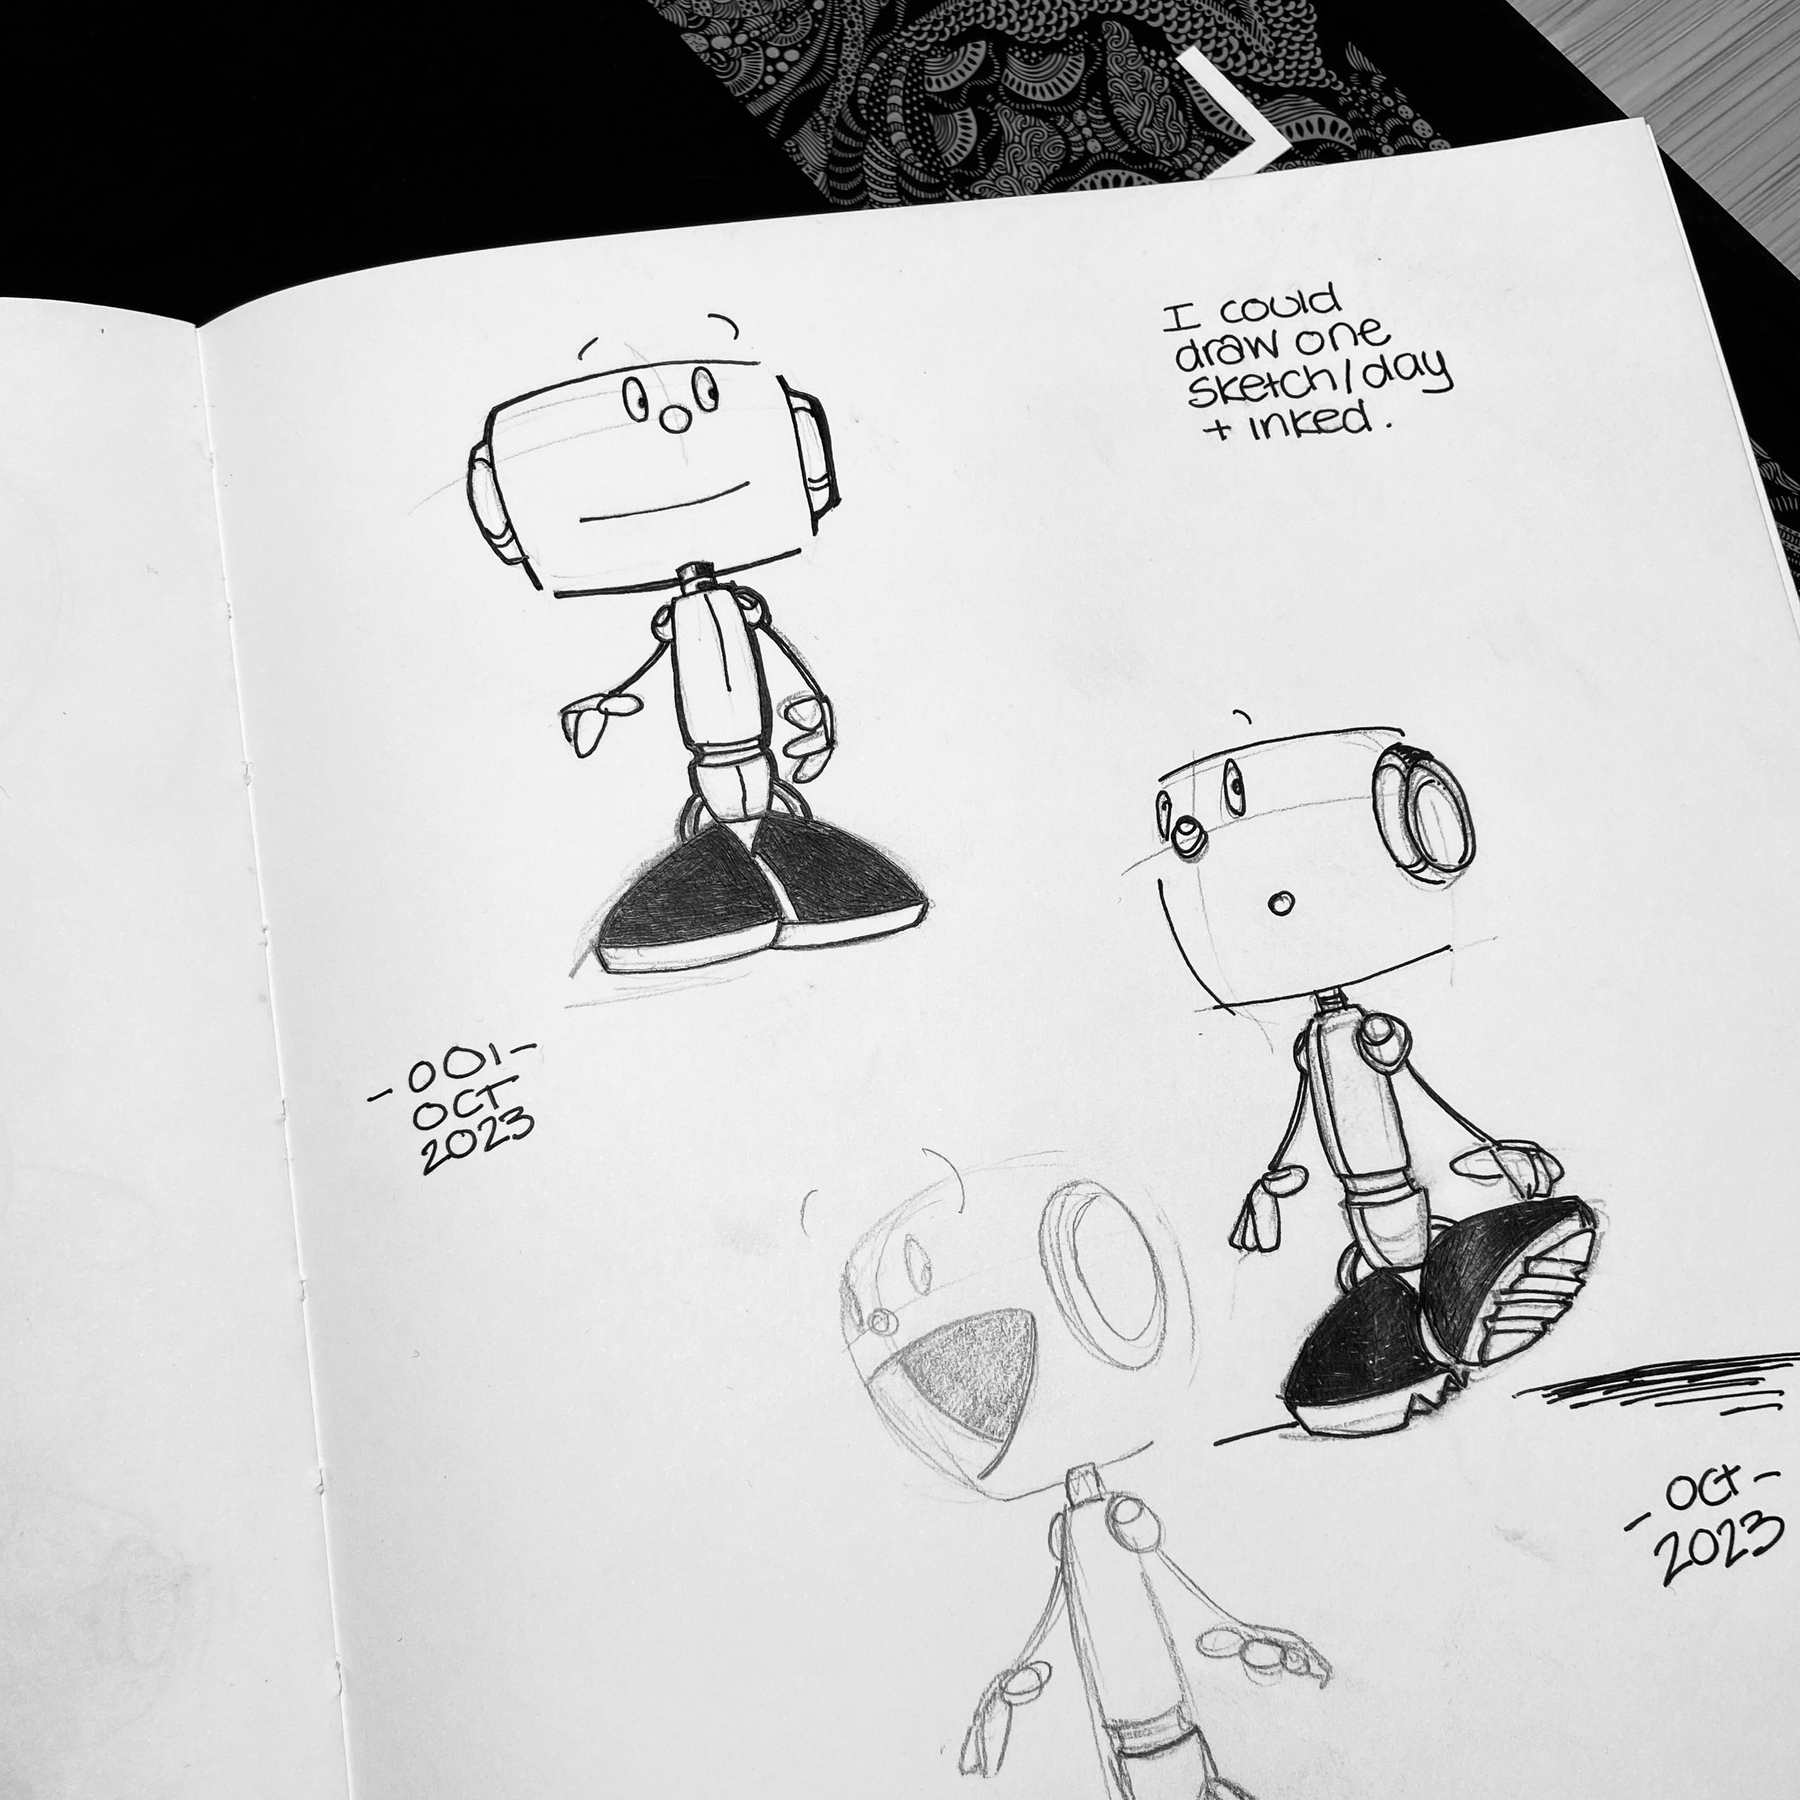 I could
draw one
sketch/day
+ inked.
-001-
OCT
2023
-Oct-
2023